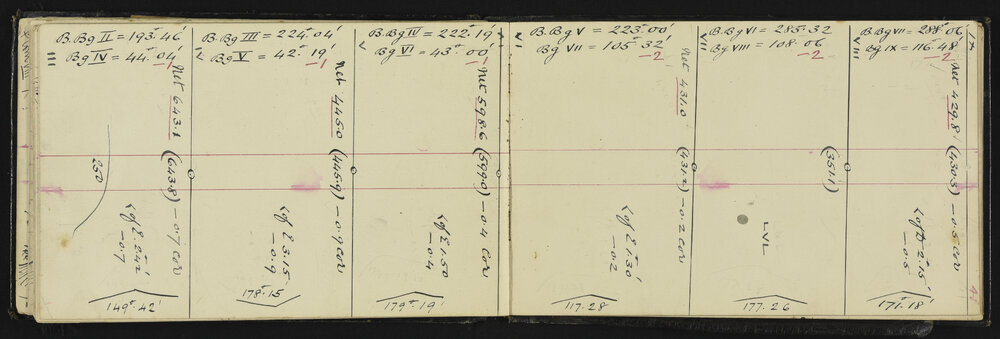 B.Bg II = 193°.46'
Bg IV = 44°.04'
-1
III
Net 643.1 (643.8) - 0.7 cor
250
L of E 2°.42'
-0.7
149°.42'
B.Bg III = 224°.04'
Bg V = 42°.19'
-1
Net 445.0 (445.9) - 0.9 cor
L of E 3°.15'
-0.9
178°.15
B.Bg IV = 222°.19'
Bg VI = 43°.00'
-1
Net 598.6 (599.0) - 0.4 cor
L of E 1.50
-0.4
179°.19'
VI
B.Bg V = 223°.00'
Bg VII = 105°.32'
-2
Net 431.0 (431.2) - 0.2 cor
L of E 1°.30'
-0.2
117.28
VII
B.Bg VI = 285°.32
Bg VIII = 108°.06
-2
(351.1)
LVL
177.26
VIII
B.Bg VII = 288°.06'
Bg IX = 116.48'
-2
IX
Net 429.8 (430.3) - 0.5 cor
L of D 2°.15'
-0.5
171°.18'